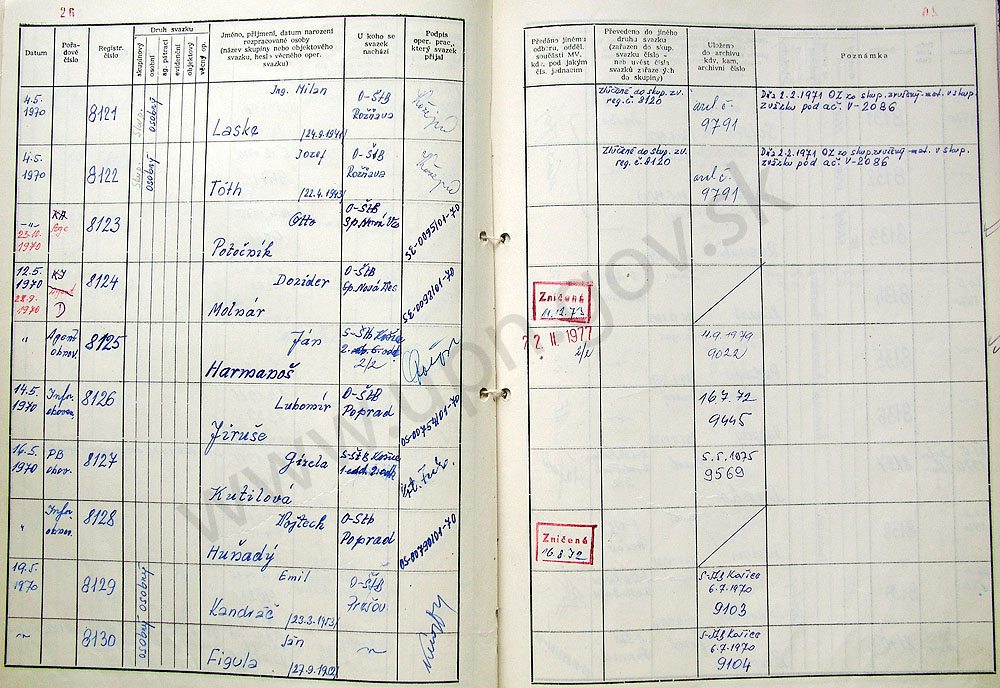 26
Datum
Pořa-
dové
číslo
Registr.
číslo
Druh svazku
skupinový
osobní
sg. pátrací
evidenční
objektový
věcný op.
Jméno, příjmení, datum narození
rozpracované osoby
(název skupiny nebo objektového
svazku, heslo věcného oper.
svazku)
U koho se
svazek
nachází
Podpis
oper. prac.,
který svazek
přijal
Předáno jinému
odboru, odděl.
součásti MV,
kdy, pod jakým
čís. jednacím
Převedeno do jiného
druhu svazku
(zařazen do skup.
svazku číslo -
neb uvést číslo
svazků zařazených
do skupiny)
Uloženo
do archivu
kdy, kam,
archivní číslo
Poznámka
4.5.
1970
8121
osobný
Ing. Milan
Laske
(24.9.1941)
O-ŠtB
Rožňava
Zlúčené do skup. zv.
reg. č. 8120
arch. č.
9791
Dňa 2.2.1971 OZ zo skup. zvučený-mat. v skup.
zväzku pod ač. V-2086
4.5.
1970
8122
osobný
Jozef
Tóth
(22.4.1943)
O-ŠtB
Rožňava
Zlúčené do skup. zv.
reg. č. 8120
arch. č.
9791
Dňa 2.2.1971 OZ zo skup. zvučený-mat. v skup.
zväzku pod ač. V-2086
-"-
23.10.
1970
8123
Otto
Potočník
O-ŠtB
Sp. Nová Ves
SE-0095/01-70
12.5.
1970
28.9.
1970
KJ
8124
Dozider
Molnár
O-ŠtB
Sp. Nová Ves
SE-0098/01-70
Zničené
11.12.73
"
Agent
obnov.
8125
Ján
Harmanoš
S-ŠtB Košice
2/2
22. II. 1977
2/2
4.9.1979
9022
14.5.
1970
Infor.
obnov.
8126
Lubomír
Jiruše
O-ŠtB
Poprad
OS-00757/01-70
16.7.72
9445
14.5.
1970
PB
obnov.
8127
Gizela
Kutilová
S-ŠtB Košice
1. odd. 2. odb.
5.5.1975
9569
"
Infor.
obnov.
8128
Vojtech
Huňady
O-Stb
Poprad
OS-00790/01-70
Zničené
16.8.72
19.5.
1970
8129
osobný
Emil
Kandráč
(23.3.1913)
O-ŠtB
Prešov
S-ŠtB Košice
6.7.1970
9103
-"-
8130
osobný
Ján
Figula
(27.9.1912)
-"-
S-ŠtB Košice
6.7.1970
9104
www.upn.gov.sk